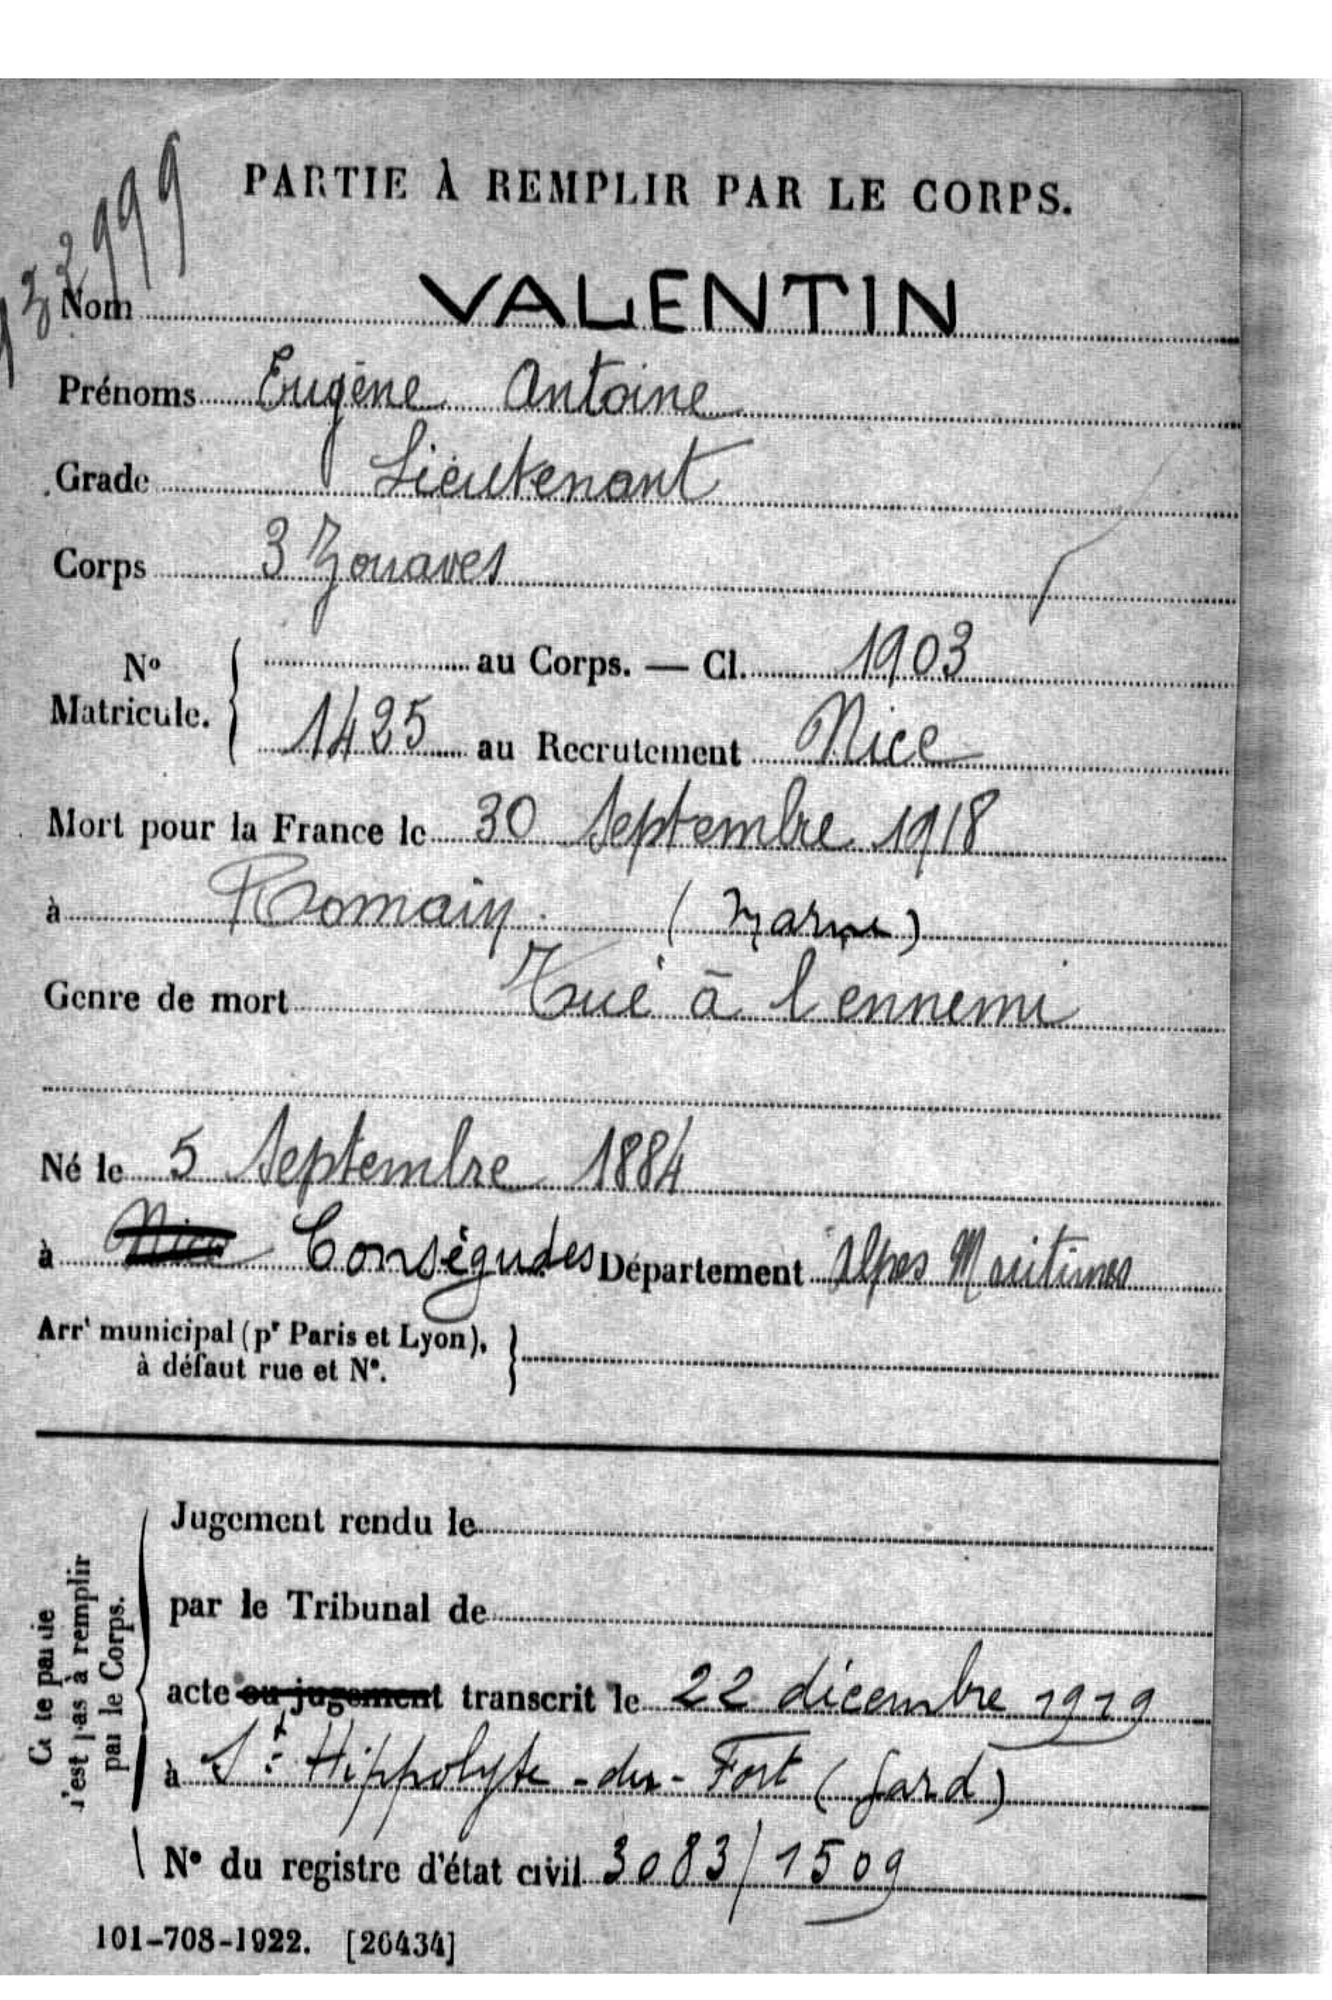 PARTIE À REMPLIR PAR LE CORPS.
132999
Nom VALENTIN
Prénoms Eugène Antoine
Grade Lieutenant
Corps 3 Zouaves
No Matricule. { au Corps. — Cl. 1903
1425 au Recrutement Nice
Mort pour la France le 30 Septembre 1918
à Romain (Marne)
Genre de mort Tué à l'ennemi
Né le 5 Septembre 1884
à Nice Conségudes Département Alpes Maritimes
Arrt municipal (pr Paris et Lyon),
à défaut rue et N°.
Jugement rendu le
par le Tribunal de
acte ou jugement transcrit le 22 décembre 1919
à St Hippolyte-du-Fort (Gard)
N° du registre d'état civil 3083/1509
Cette partie
n'est pas à remplir
par le Corps.
101-708-1922. [26434]